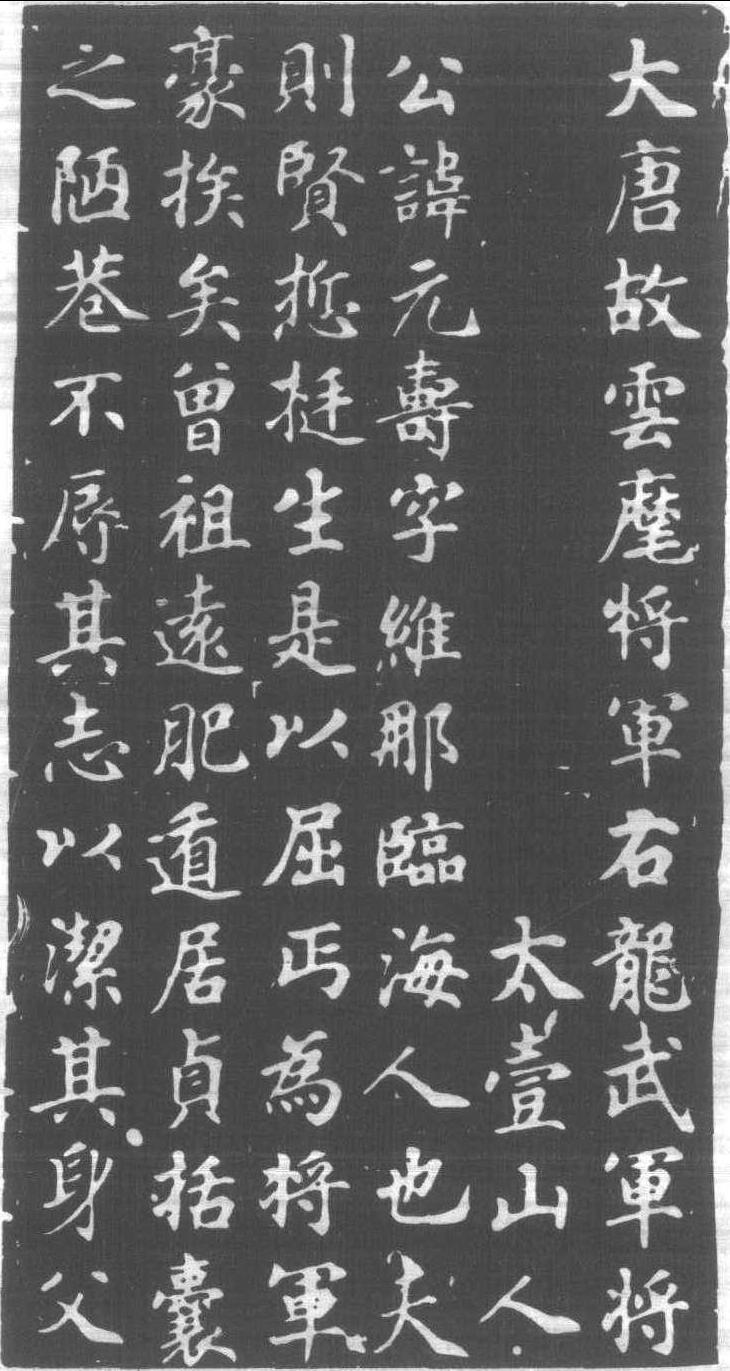 大唐故雲麾将軍右龍武軍将
太壹山人
公諱元壽字維那臨海人也夫
則賢悊挻生是以屈丐為将軍
豪挨矣曾祖遠肥遁居貞括囊
之陋巷不辱其志以潔其身父